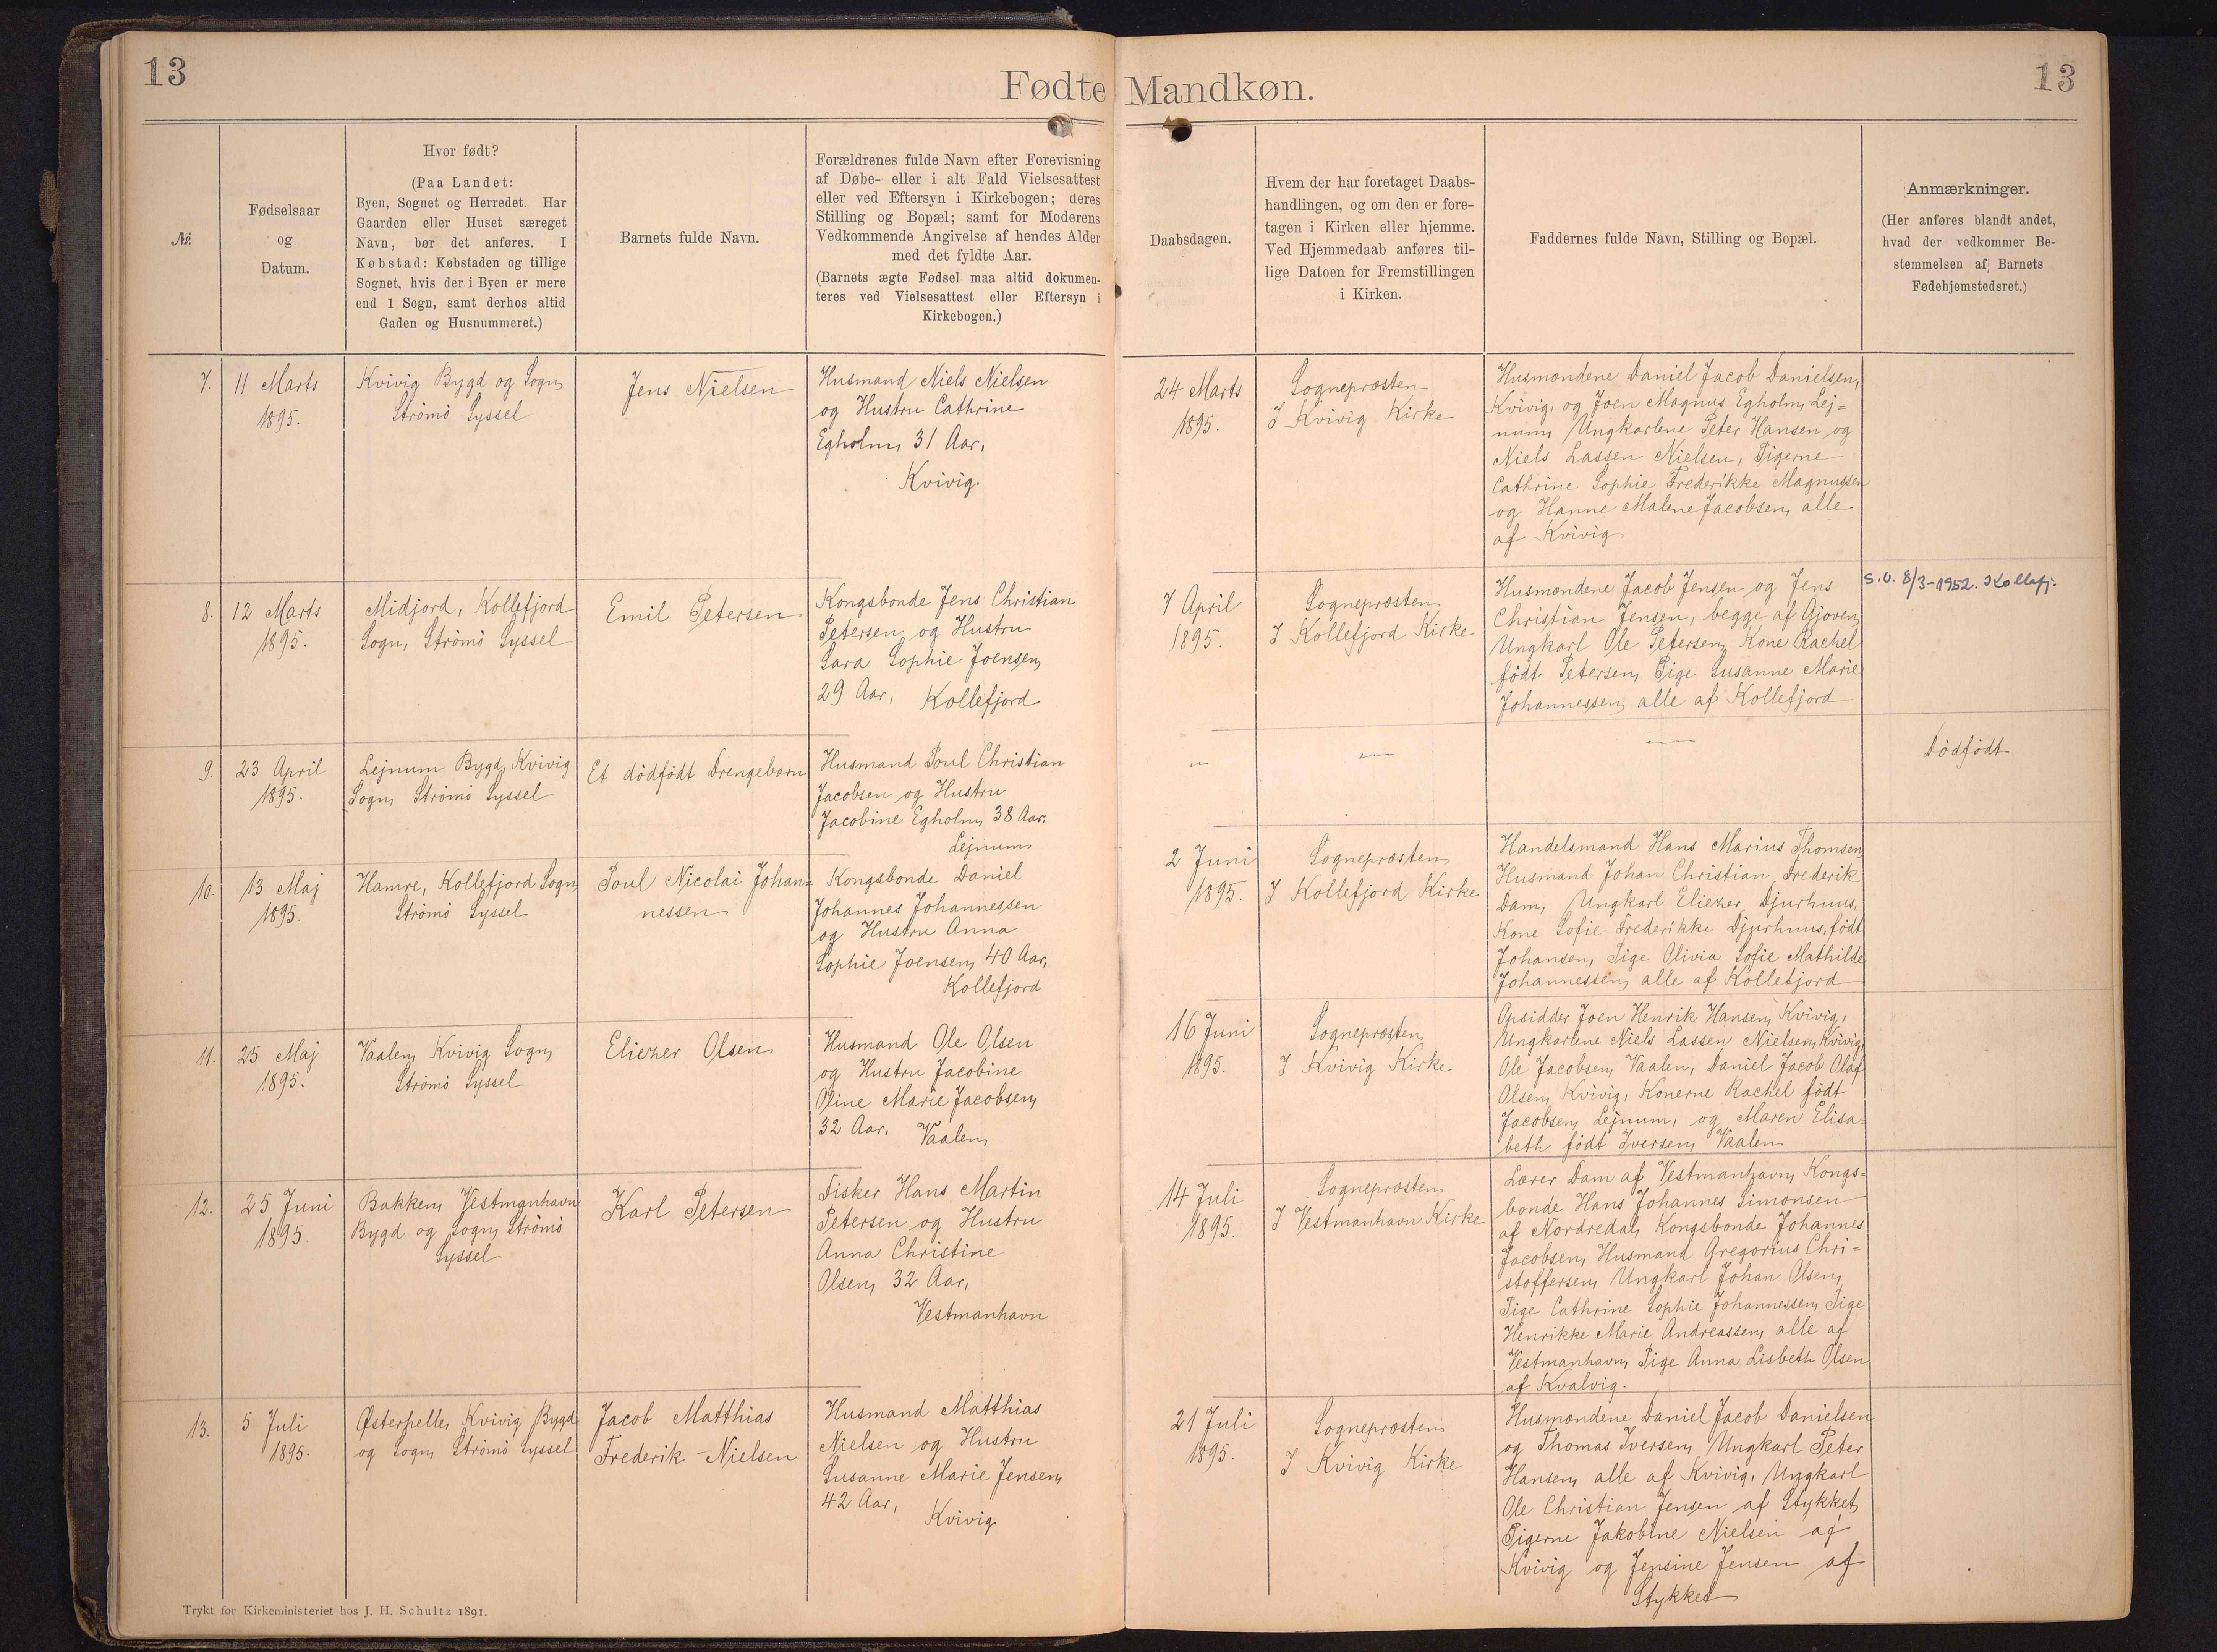 13
Fødte Mandkøn.
13
№.
Fødselsaar
og
Datum.
Hvor født?
(Paa Landet:
Byen, Sognet og Herredet. Har
Gaarden eller Huset særeget
Navn, bør det anføres. I
Købstad: Købstaden og tillige
Sognet, hvis der i Byen er mere
end 1 Sogn, samt derhos altid
Gaden og Husnummeret.)
Barnets fulde Navn.
Forældrenes fulde Navn efter Forevisning
af Døbe- eller i alt Fald Vielsesattest
eller ved Eftersyn i Kirkebogen; deres
Stilling og Bopæl; samt for Moderens
Vedkommende Angivelse af hendes Alder
med det fyldte Aar.
(Barnets ægte Fødsel maa altid dokumen-
teres ved Vielsesattest eller Eftersyn i
Kirkebogen.)
Daabsdagen.
Hvem der har foretaget Daabs-
handlingen, og om den er fore-
tagen i Kirken eller hjemme.
Ved Hjemmedaab anføres til-
lige Datoen for Fremstillingen
i Kirken.
Faddernes fulde Navn, Stilling og Bopæl.
Anmærkninger.
(Her anføres blandt andet,
hvad der vedkommer Be-
stemmelsen af Barnets
Fødehjemstedsret.)
7.
11 Marts
1895.
Kvivig Bygd og Sogn,
Strömö Syssel
Jens Nielsen
Husmand Niels Nielsen
og Hustru Cathrine
Egholm, 31 Aar,
Kvivig.
24 Marts
1895.
Sognepræsten
I Kvivig Kirke
Husmændene Daniel Jacob Danielsen,
Kvivig, og Joen Magnus Egholm, Lej=
num, Ungkarlene Peter Hansen og
Niels Lassen Nielsen, Pigerne
Cathrine Sophie Frederikke Magnussen
og Hanne Malene Jacobsen, alle
af Kvivig
8.
12 Marts
1895.
Midjord, Kollefjord
Sogn, Strömö Syssel
Emil Petersen
Kongsbonde Jens Christian
Petersen og Hustru
Sara Sophie Joensen,
29 Aar, Kollefjord
7 April
1895.
Sognepræsten
I Kollefjord Kirke
Husmændene Jacob Jensen og Jens
Christian Jensen, begge af Gjoven,
Ungkarl Ole Petersen, Kone Rachel
født Petersen, Pige Susanne Marie
Johannessen, alle af Kollefjord
S.O. 8/3-1952. I Kollafj.
9.
23 April
1895.
Lejnum Bygd, Kvivig
Sogn, Strömö Syssel
Et dödfödt Drengebarn
Husmand Poul Christian
Jacobsen og Hustru
Jacobine Egholm, 38 Aar,
Lejnum
Dödfödt
10.
13 Maj
1895.
Hamre, Kollefjord Sogn,
Strömö Syssel
Poul Nicolai Johan=
nessen
Kongsbonde Daniel
Johannes Johannessen
og Hustru Anna
Sophie Joensen, 40 Aar,
Kollefjord
2 Juni
1895.
Sognepræsten
I Kollefjord Kirke
Handelsmand Hans Marius Thomsen,
Husmand Johan Christian Frederik
Dam, Ungkarl Eliezer Djurhuus,
Kone Sofie Frederikke Djurhuus, födt
Johansen, Pige Olivia Sofie Mathilde
Johannessen, alle af Kollefjord
11.
25 Maj
1895.
Vaalen, Kvivig Sogn,
Strömö Syssel
Eliezer Olsen
Husmand Ole Olsen
og Hustru Jacobine
Oline Marie Jacobsen,
32 Aar, Vaalen,
16 Juni
1895.
Sognepræsten
I Kvivig Kirke
Opsidder Joen Henrik Hansen, Kvivig,
Ungkarlene Niels Lassen Nielsen, Kvivig,
Ole Jacobsen, Vaalen, Daniel Jacob Olaf
Olsen, Kvivig, Konerne Rachel födt
Jacobsen, Lejnum, og Maren Elisa=
beth födt Iversen, Vaalen
12.
25 Juni
1895
Bakken, Vestmanhavn
Bygd og Sogn, Strömö
Syssel
Karl Petersen
Fisker Hans Martin
Petersen og Hustru
Anna Christine
Olsen, 32 Aar,
Vestmanhavn
14 Juli
1895.
Sognepræsten
I Vestmanhavn Kirke
Lærer Dam af Vestmanhavn, Kongs=
bonde Hans Johannes Simonsen
af Nordredal, Kongsbonde Johannes
Jacobsen, Husmand Gregorius Chri=
stoffersen, Ungkarl Johan Olsen,
Pige Cathrine Sophie Johannessen, Pige
Henrikke Marie Andreassen, alle af
Vestmanhavn, Pige Anna Lisbeth Olsen
af Kvalvig.
13.
5 Juli
1895.
Østerhelle, Kvivig Bygd
og Sogn, Strömö Syssel
Jacob Matthias
Frederik Nielsen
Husmand Matthias
Nielsen og Hustru
Susanne Marie Jensen,
42 Aar,
Kvivig
21 Juli
1895.
Sognepræsten
I Kvivig Kirke
Husmændene Daniel Jacob Danielsen
og Thomas Iversen, Ungkarl Peter
Hansen, alle af Kvivig, Ungkarl
Ole Christian Jensen af Stykket,
Pigerne Jakobine Nielsen af
Kvivig og Jensine Jensen af
Stykket
Trykt for Kirkeministeriet hos J. H. Schultz 1891.